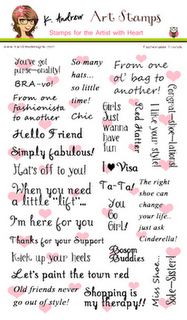 K. Andrew Art Stamps
Stamps for the Artist with Heart
You've got
purse-onality!
BRA-vo!
From one
fashionista
to another
So many
hats...
so little
time!
Chic
From one
ol' bag to
another!
Girls
Just
wanna
have
fun
Red Hatter
I like your style!
Congrat-shoe-lations!
Hello Friend
Simply fabulous!
Hat's off to you!
I Visa
When you need
a little "lift"...
Ta-Ta!
You
Go
Girl!
The right
shoe can
change
your life..
just ask
Cinderella!
I'm here for you
Thanks for your Support
Kick up your heels
Bosom
Buddies
Let's paint the town red
Old friends never
go out of style!
Shopping is
my therapy!!
Miss Shoe...
Sole-Sister!